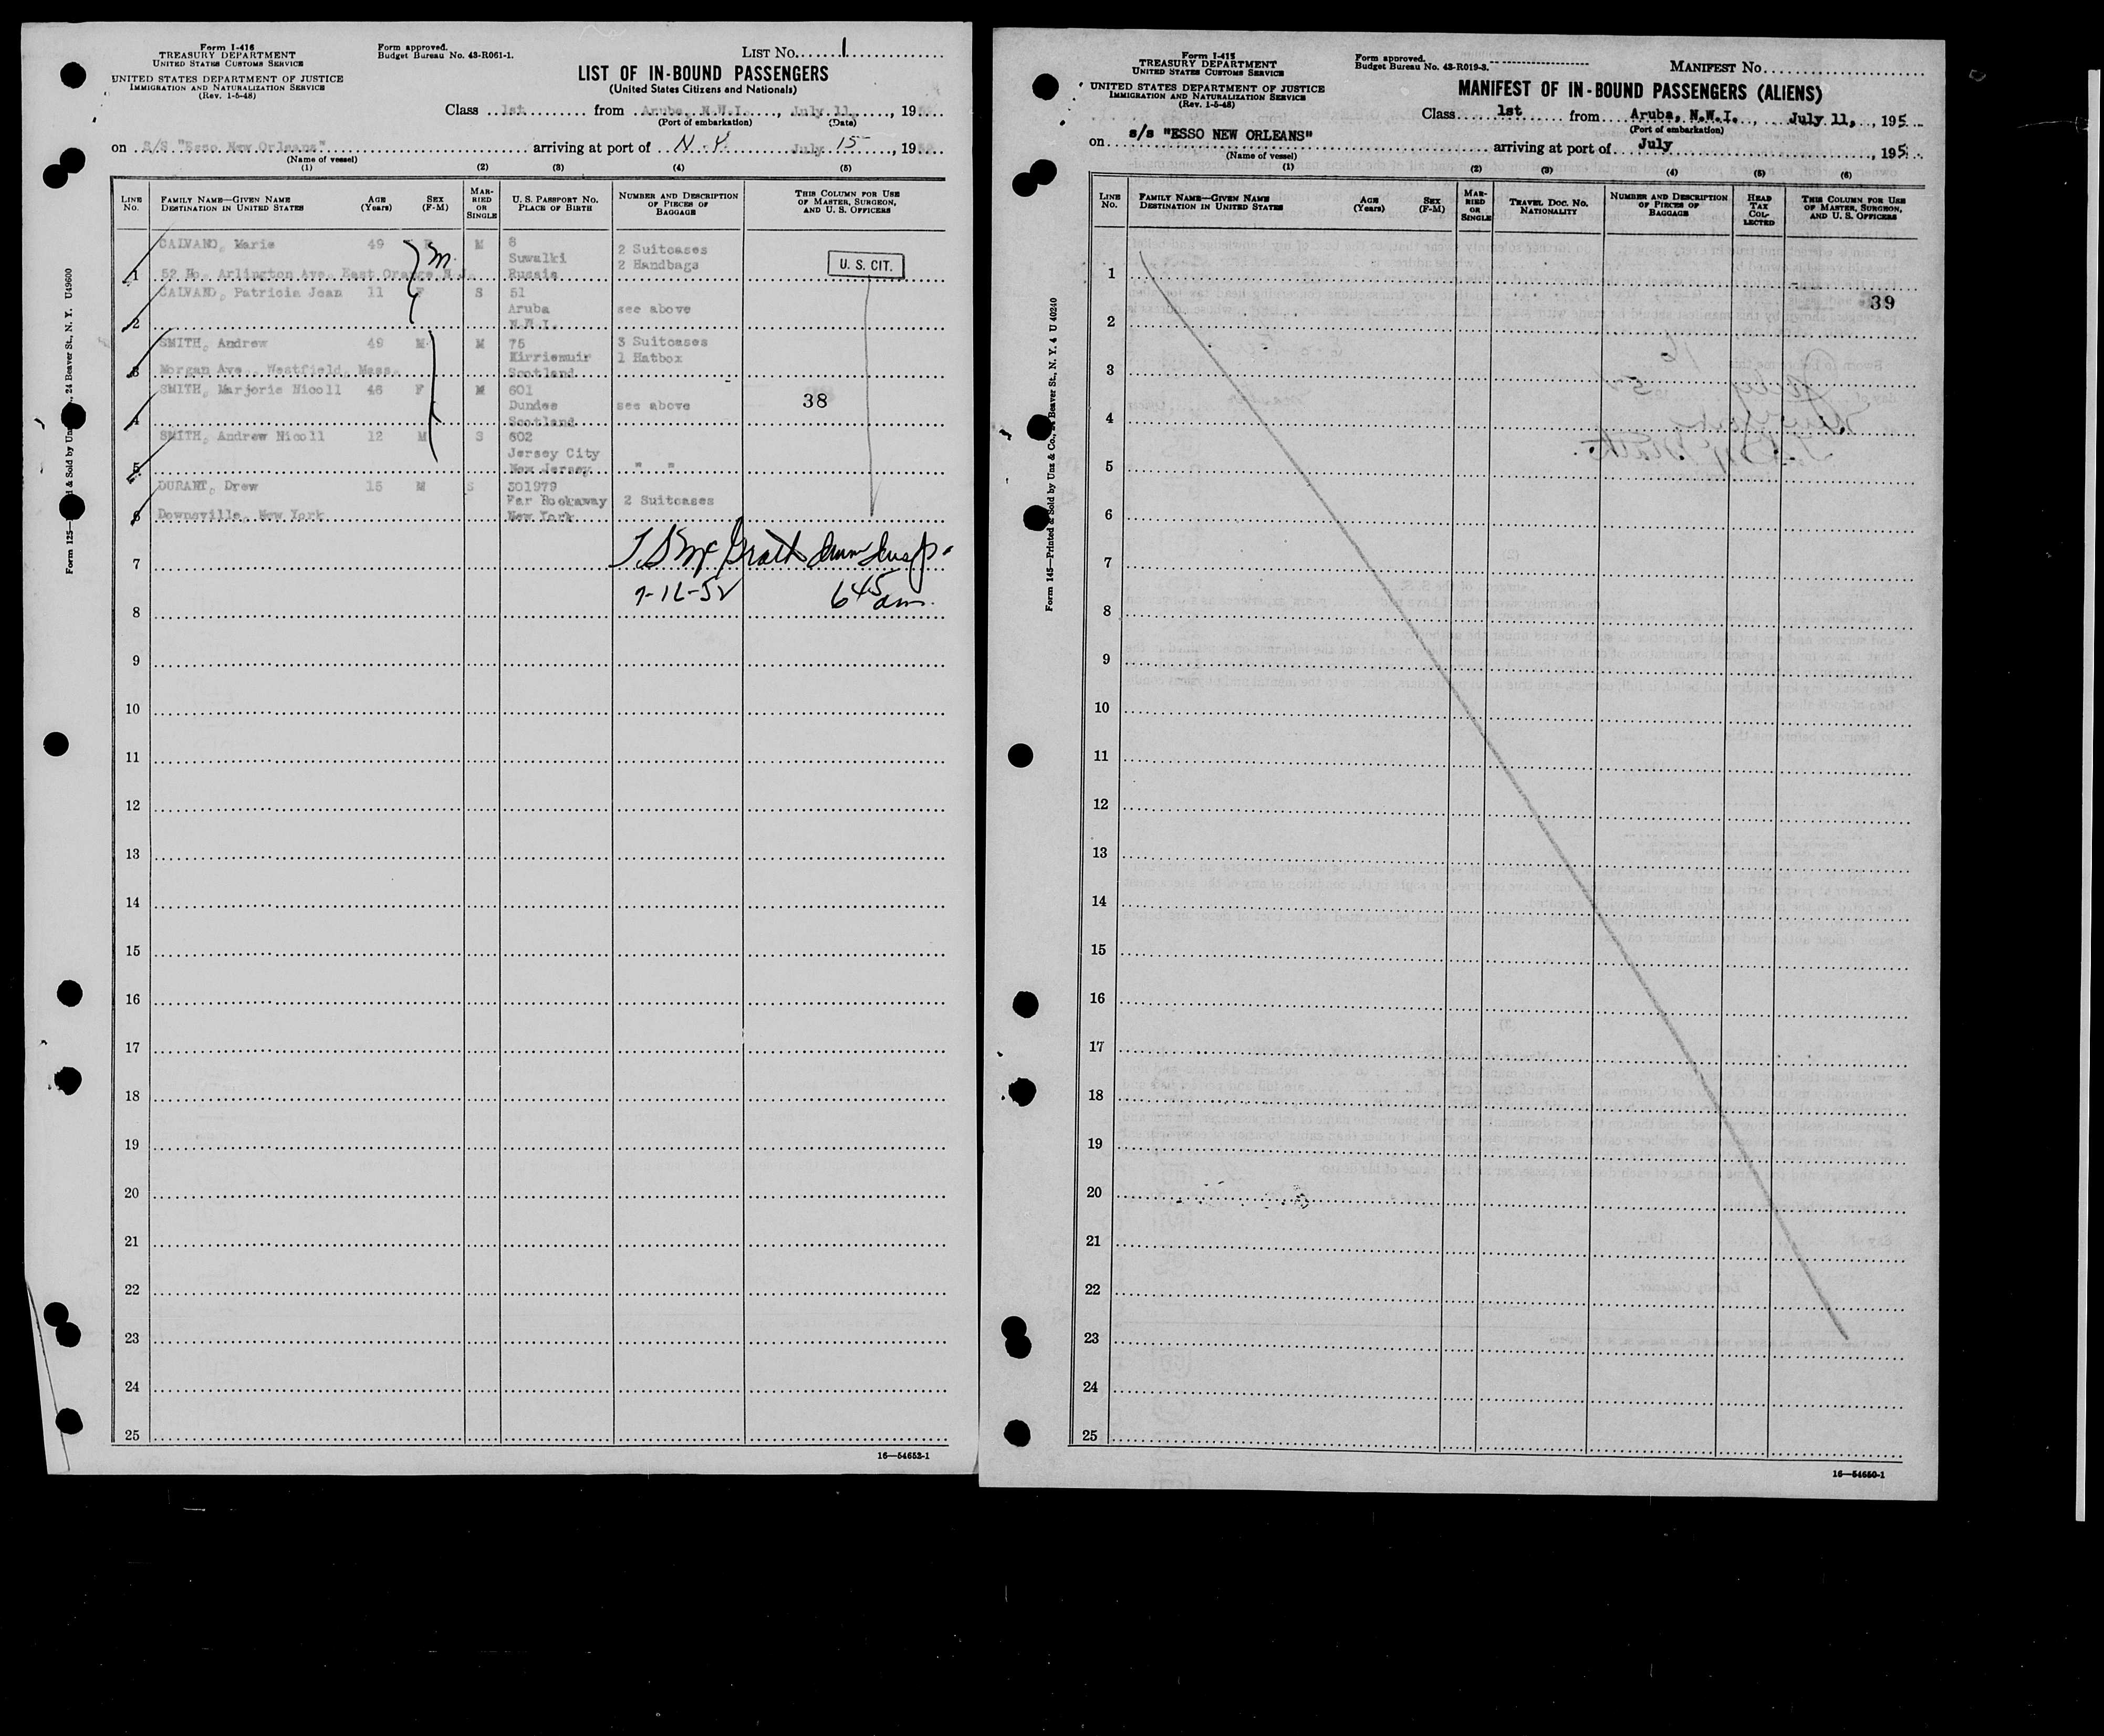 Form I-416
TREASURY DEPARTMENT
UNITED STATES CUSTOMS SERVICE
UNITED STATES DEPARTMENT OF JUSTICE
IMMIGRATION AND NATURALIZATION SERVICE
(Rev. 1-5-48)
Form approved.
Budget Bureau No. 43-R061-1.
LIST NO. 1
LIST OF IN-BOUND PASSENGERS
(United States Citizens and Nationals)
Class 1st from Aruba, N.W.I., July 11, 19
(Port of embarkation) (Date)
on S/S "Esso New Orleans" arriving at port of N.Y. July 15, 19
(Name of vessel)
(1) (2) (3) (4) (5)
LINE NO. FAMILY NAME—GIVEN NAME DESTINATION IN UNITED STATES AGE (Years) SEX (F-M) MARRIED OR SINGLE U. S. PASSPORT NO. PLACE OF BIRTH NUMBER AND DESCRIPTION OF PIECES OF BAGGAGE THIS COLUMN FOR USE OF MASTER, SURGEON, AND U. S. OFFICERS
CALVANO, Marie 49 F M 8 2 Suitcases
Suwalki 2 Handbags
1 52 No. Arlington Ave. East Orange N.J. Russia U. S. CIT.
CALVANO, Patricia Jean 11 F S 51
Aruba see above
2 N.W.I.
SMITH, Andrew 49 M M 75 3 Suitcases
Kirriemuir 1 Hatbox
3 Morgan Ave., Westfield, Mass. Scotland
SMITH, Marjorie Nicoll 46 F M 601
Dundee see above 38
4 Scotland
SMITH, Andrew Nicoll 12 M S 602
Jersey City
5 New Jersey " "
DURANT, Drew 15 M S 301979
Far Rockaway 2 Suitcases
6 Downsville, New York New York
7 T.S. McGrath Imm Insp.
7-16-52 645 am.
8
9
10
11
12
13
14
15
16
17
18
19
20
21
22
23
24
25
16—54652-1
Form 125— & Sold by 24 Beaver St., N. Y. U49600
Form I-415
TREASURY DEPARTMENT
UNITED STATES CUSTOMS SERVICE
UNITED STATES DEPARTMENT OF JUSTICE
IMMIGRATION AND NATURALIZATION SERVICE
(Rev. 1-5-48)
Form approved.
Budget Bureau No. 43-R019-3.
MANIFEST NO.
MANIFEST OF IN-BOUND PASSENGERS (ALIENS)
Class 1st from Aruba, N.W.I., July 11, 195
(Port of embarkation)
on s/s "ESSO NEW ORLEANS" arriving at port of July, 195
(Name of vessel)
(1) (2) (3) (4) (5) (6)
LINE NO. FAMILY NAME—GIVEN NAME DESTINATION IN UNITED STATES AGE (Years) SEX (F-M) MARRIED OR SINGLE TRAVEL DOC. NO. NATIONALITY NUMBER AND DESCRIPTION OF PIECES OF BAGGAGE HEAD TAX COLLECTED THIS COLUMN FOR USE OF MASTER, SURGEON, AND U. S. OFFICERS
1
39
2
3
4
5
6
7
8
9
10
11
12
13
14
15
16
17
18
19
20
21
22
23
24
25
16—54650-1
Form 145—Printed & Sold by Unz & Co., 24 Beaver St., N. Y. 4 U 40240